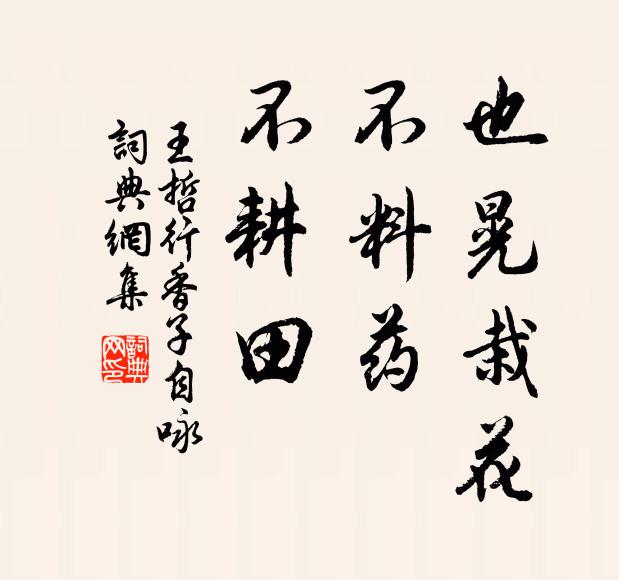 也晃栽花
不料药
不耕田
王哲行香子自咏
詞典網集
詞典网印